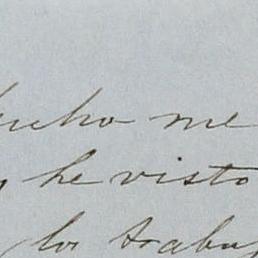 mucho me
he visto
los trabaj